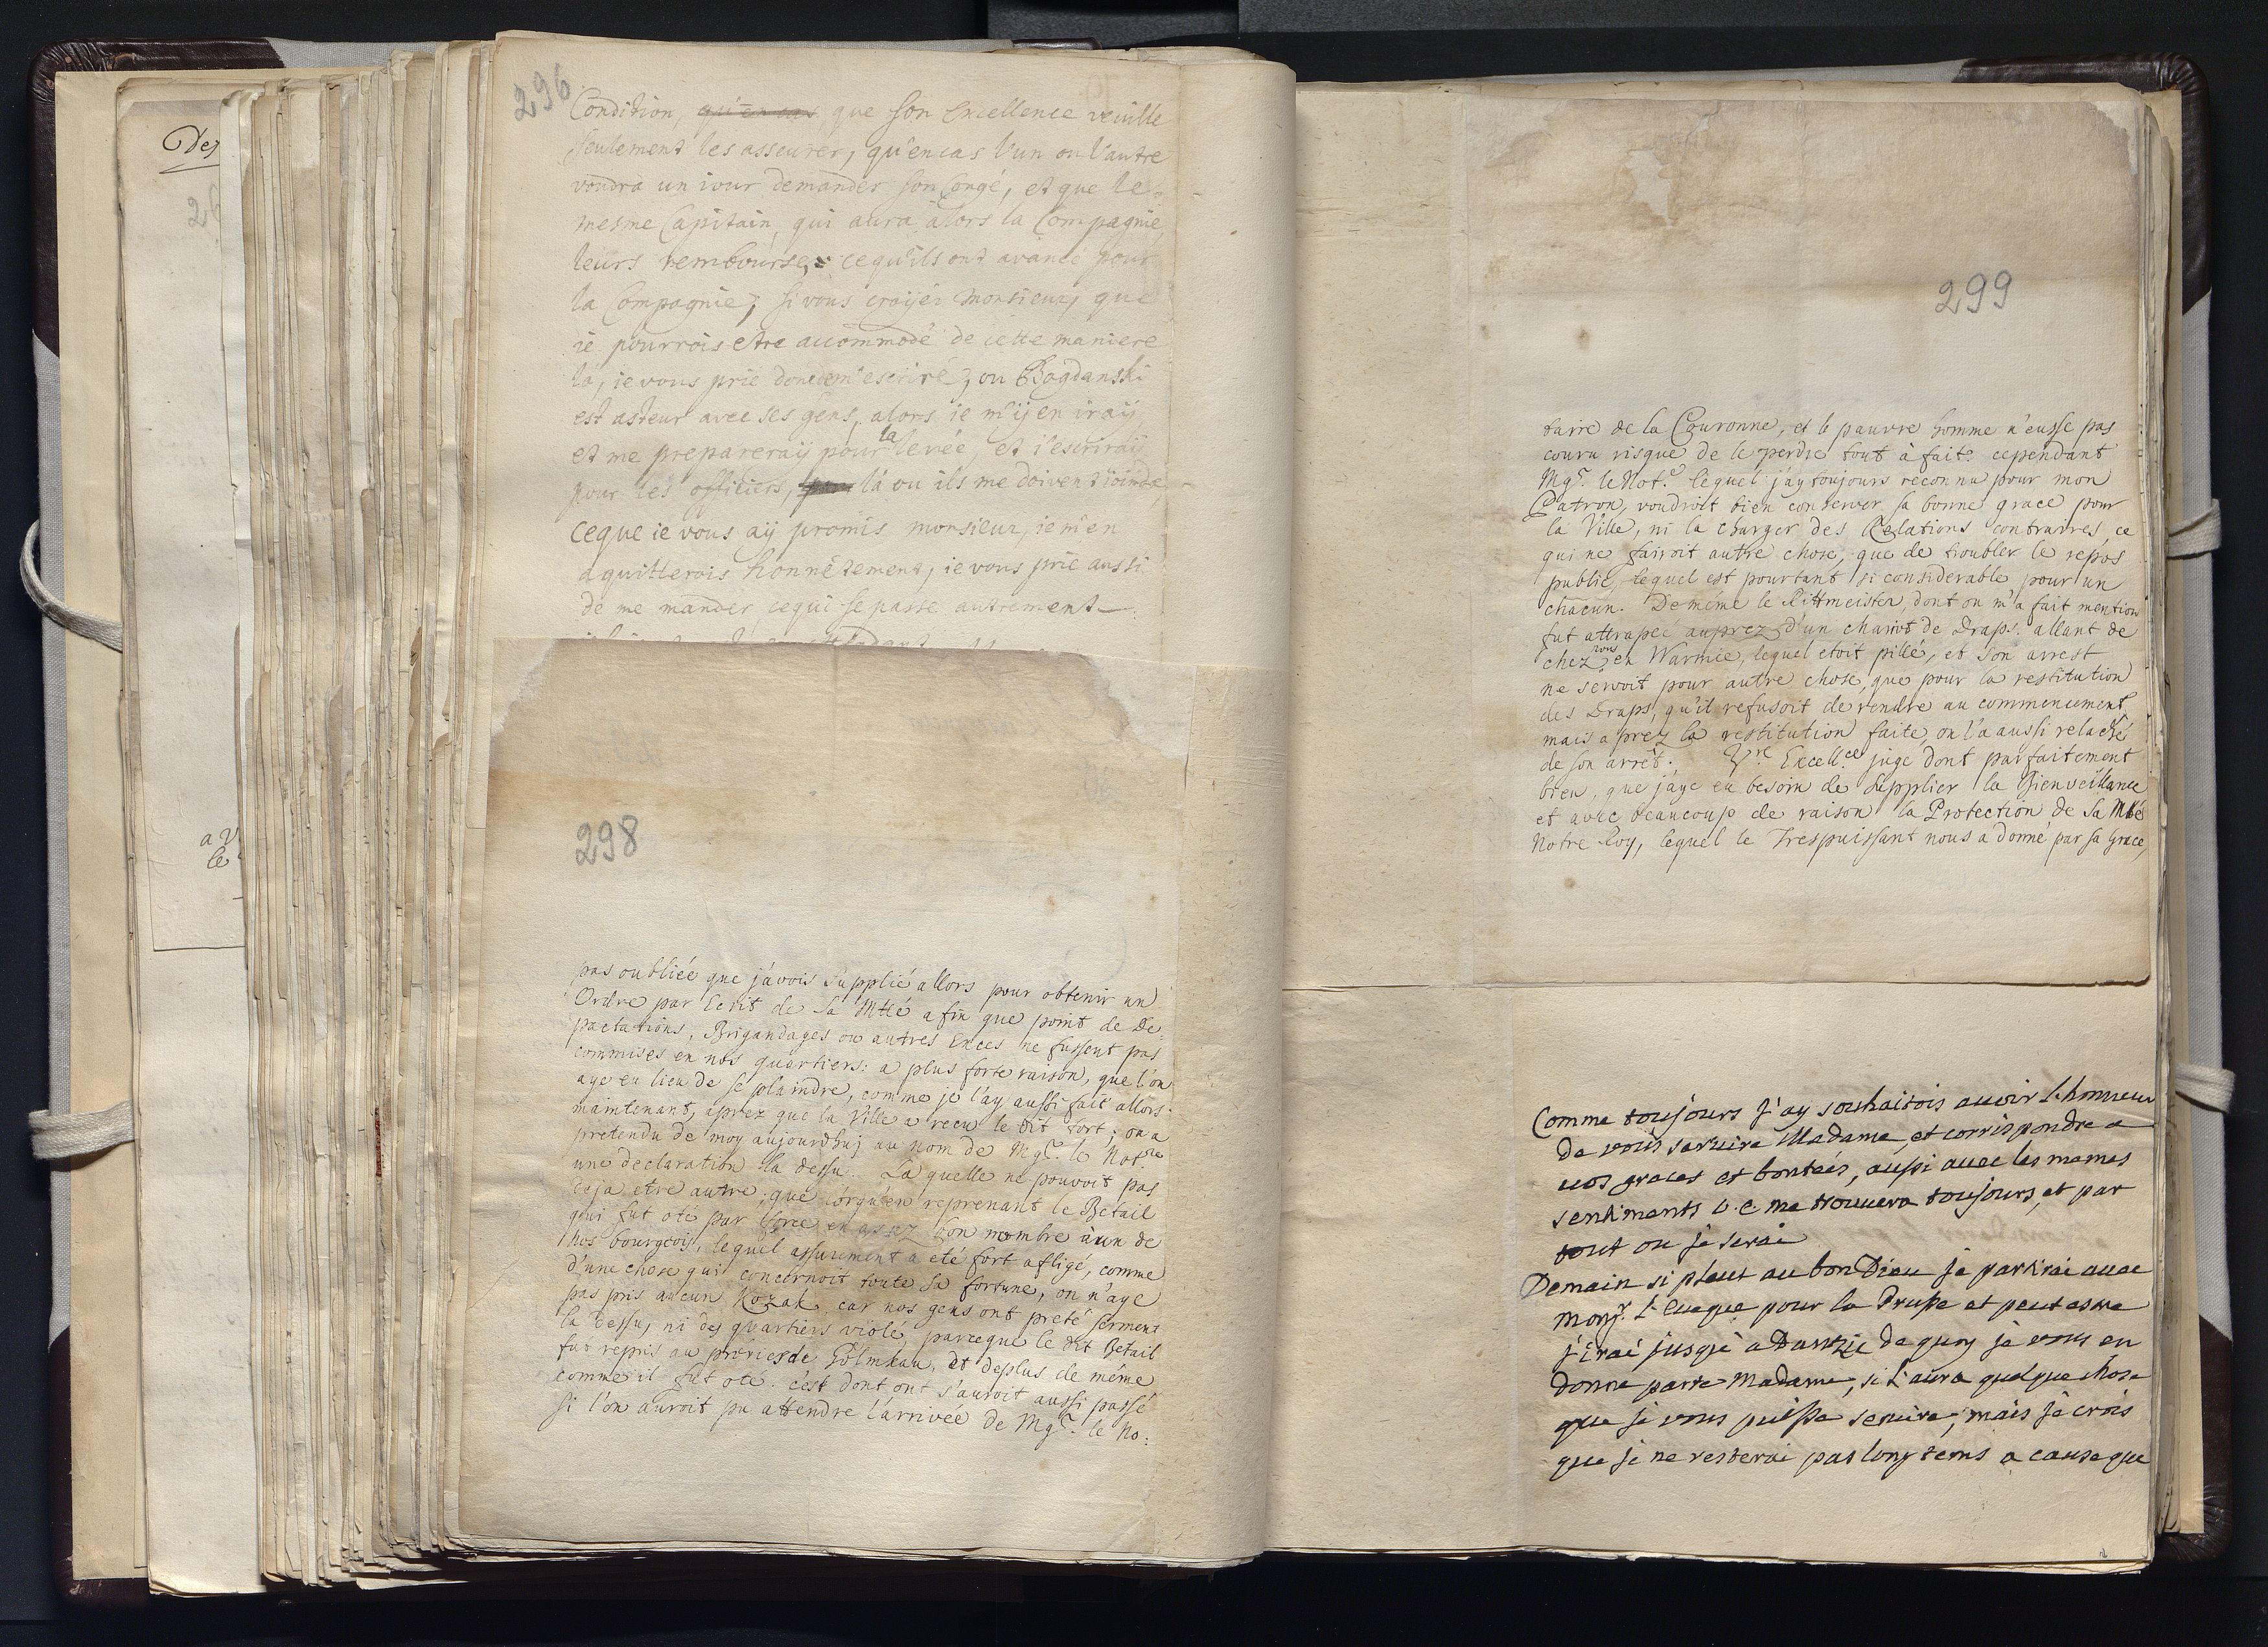 Des
26
a V
le
296
Condition, qu'en cas que son Excellence veuille
seulement les asseurer, qu'encas l'un ou l'autre
voudra un iour demander son Congé, et que le
mesme Capitain, qui aura alors la Compagnie,
leurs rembourse, ce qu'ils ont avancé pour
la Compagnie; si vous croijéz Monsieur, que
ie pourrois estre accommodé de cette maniere
là, ie vous prie donc m'escriré, ou Bogdanski
est asteur avec ses gens, alors ie m'ij en iraij
et me prepareraij pour la levée, et i'escriraij
pour les officiers, là ou ils me doivent ioindre,
ceque ie vous aij promis monsieur, ie m'en
aquitterois honnêtement, ie vous prie aussi
de me mander, cequi se passe autrement
298
pas oubliée que j'avois supplié allors pour obtenir un
Ordre par Ecrit de Sa Mtté afin que point de De
pactations, Brigandages ou autres Exces ne fussent pas
commises en nos quartiers: a plus forte raison, que l'on
aye eu lieu de se plaindre, comme je l'ay aussi fait allors.
maintenant, aprez que la Ville a recu le dit tort; on a
pretendu de moy aujourdhuj au nom de Mgr. le Notre
une declaration la dessu. La quelle ne pouvoit pas
deja etre autre, que lorqu'en reprenant le Betail
qui fut oté par force en assez bon nombre à un de
nos bourgeois, lequel assurement a eté fort afligé, comme
d'une chose qui concernoit toute sa fortune, on n'aye
pas pris aucun Kozak, car nos gens ont preté serment
la dessu, ni des quartiers violé, parceque le dit Betail
fut repris au priries de Golmkau, et deplus de même
comme il fut oté. c'est dont ont s'auroit aussi passé
si l'on auroit pu attendre l'arrivée de Mgr. le No:
299
taire de la Couronne, et le pauvre homme n'eusse pas
couru risque de le perdre tout à fait. cependant
Mgr. le Note. lequel j'ay toujours reconnu pour mon
Patron, voudroit bien conserver sa bonne grace pour
la Ville, ni la charger des Relations contraires, ce
qui ne fairoit autre chose, que de troubler le repos
public, lequel est pourtant si considerable pour un
chacun. De même le Rittmeister, dont on m'a fait mention
fut attrapeé auprez d'un chariot de Draps. allant de
chez nous en Warmie, lequel etoit pillé, et son arrest
ne servoit pour autre chose, que pour la restitution
des Draps, qu'il refusoit de rendre au commencement,
mais aprez la restitution faite, on l'a aussi relaché
de son arrêt. Vre. Excellce juge dont parfaitement
bien, que j'aye eu besoin de supplier la Bienveillance
et avec beaucoup de raison la Protection de Sa Mtté
Notre Roy, lequel le Trespuissant nous a donné par sa Grace,
Comme toujours j'ay souhaitois auoir l'honneur
de vous seruire Madame, et corrispondre a
uos graces et bonteés, aussi auec les memes
sentiments V. E. me trouuera toujours, et par
tout ou je serai
Demain si plaut au bon Dieu je partirai auec
Monsr. l'Eueque pour la Prusse et peut estre
j'irai jusqu'à Dantzic de quoy je vous en
donne parte Madame, si l'aura quelque chose
que je vous puisse seruire, mais je crois
que je ne resterai pas long tems a cause que